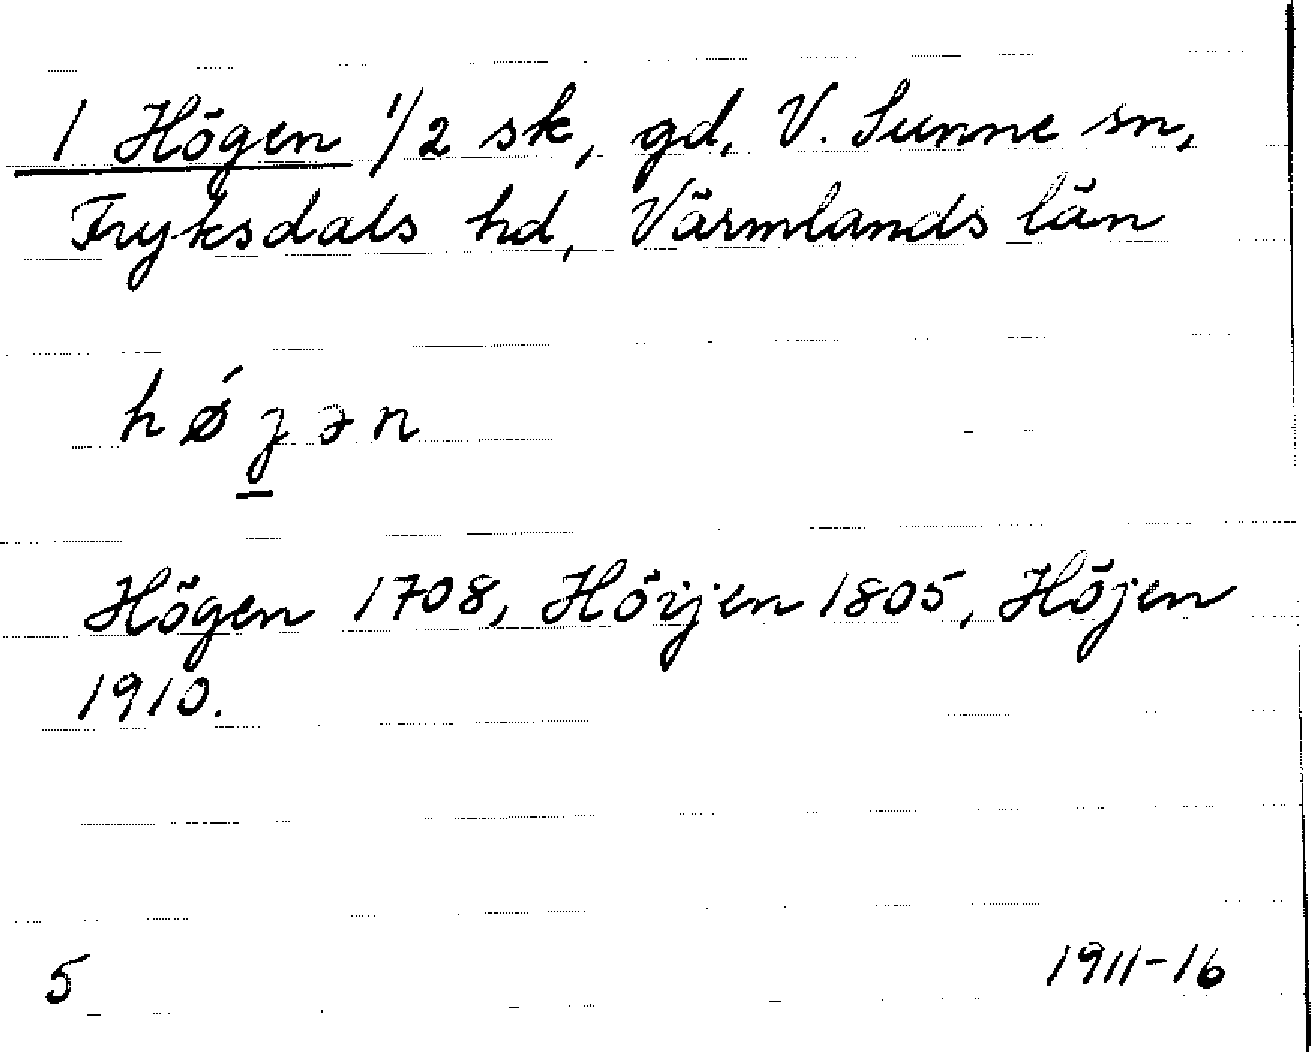 1 Högen 1/2 sk, gd, V. Sunne sn,
Fryksdals hd, Värmlands län
hǿʒən
Högen 1708, Höijen 1805, Höjen
1910.
5 1911-16